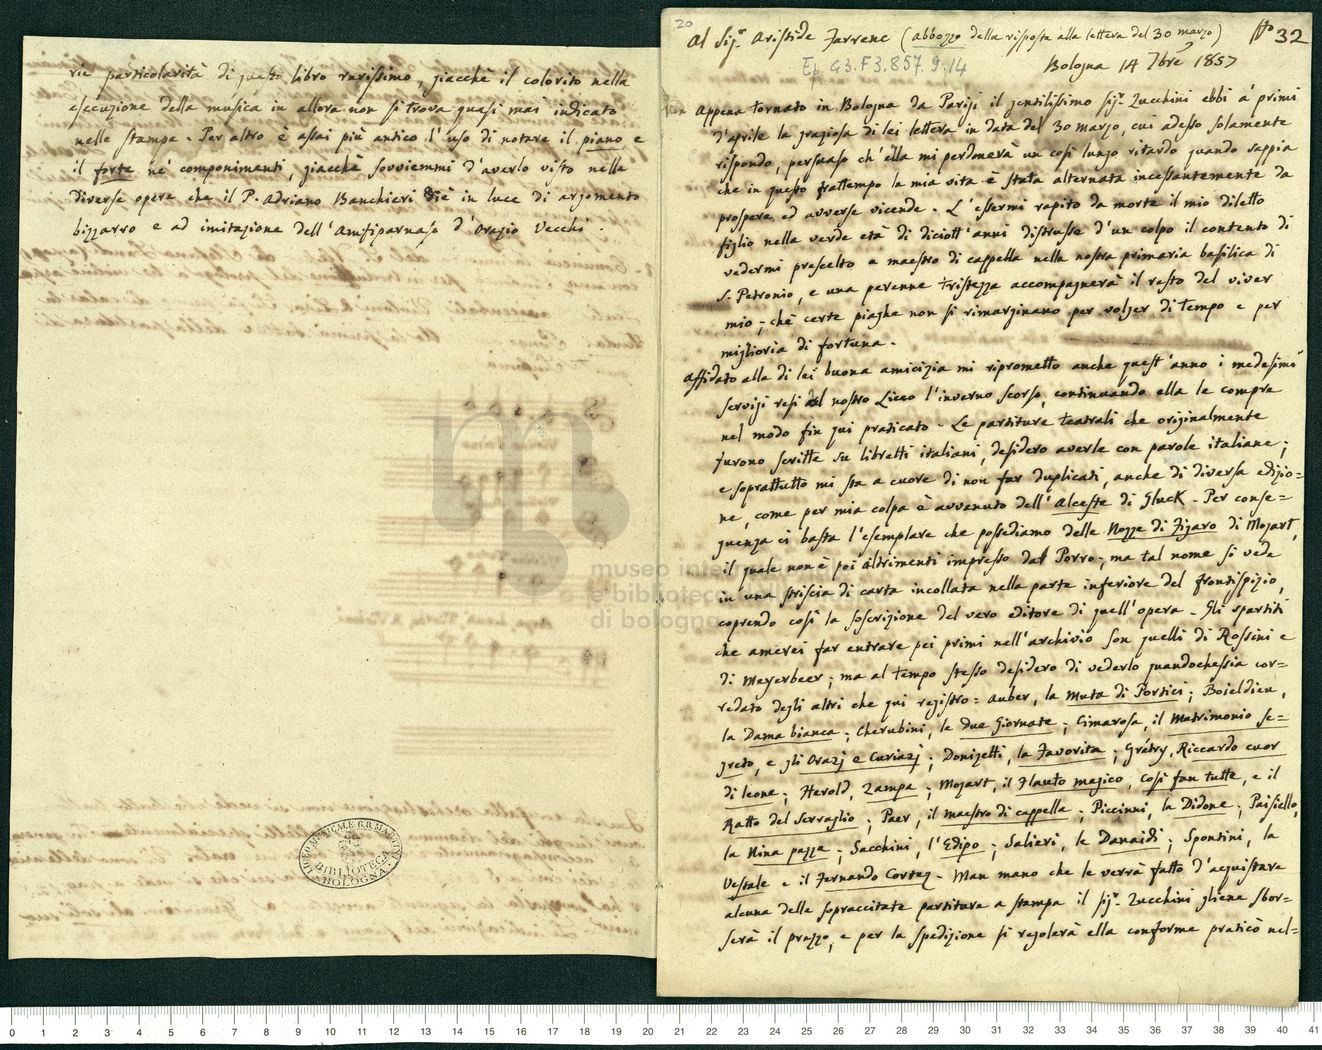 rie particolarità di questo libro rarissimo, giacchè il colorito nella
esecuzione della musica in allora non si trova quasi mai indicato
nelle stampe. Per altro è assai più antico l'uso di notare il piano e
il forte ne' componimenti, giacchè sovviemmi d'averlo visto nelle
diverse opere che il P. Adriano Banchieri diè in luce di argomento
bizzarro e ad imitazione dell'Amfiparnaso d'Orazio Vecchi.
LICEO MUSICALE G.B. MARTINI
BIBLIOTECA
BOLOGNA
20
Al Sig.r Aristide Farrenc (abbozzo della risposta alla lettera del 30 marzo)
No 32
Ep. G3.F3.857.9.14
Bologna 14 7bre 1857
Appena tornato in Bologna da Parigi il gentilissimo sig.r Zucchini ebbi a' primi
d'aprile la graziosa di lei lettera in data del 30 marzo, cui adesso solamente
rispondo, persuaso ch'ella mi perdonerà un così lungo ritardo quando sappia
che in questo frattempo la mia vita è stata alternata incessantemente da
prospere ed avverse vicende. L'essermi rapito da morte il mio diletto
figlio nella verde età di diciott'anni distrusse d'un colpo il contento di
vedermi prescelto a maestro di cappella nella nostra primaria basilica di
S. Petronio, e una perenne tristezza accompagnerà il resto del viver
mio, chè certe piaghe non si rimarginano per volger di tempo e per
miglioria di fortuna.
Affidato alla di lei buona amicizia mi riprometto anche quest'anno i medesimi
servizi resi al nostro Liceo l'inverno scorso, continuando ella le compre
nel modo fin qui praticato. Le partiture teatrali che originalmente
furono scritte su libretti italiani, desidero averle con parole italiane;
e soprattutto mi sta a cuore di non far duplicati, anche di diversa edizio=
ne, come per mia colpa è avvenuto dell'Alceste di Gluck. Per conse=
guenza ci basta l'esemplare che possediamo delle Nozze di Figaro di Mozart,
il quale non è poi altrimenti impresso dal Porro, ma tal nome si vede
in una striscia di carta incollata nella parte inferiore del frontispizio,
coprendo così la soscrizione del vero editore di quell'opera. Gli spartiti
che amerei far entrare pei primi nell'archivio son quelli di Rossini e
di Meyerbeer; ma al tempo stesso desidero di vederlo quandochessia cor=
redato degli altri che qui registro: Auber, la Muta di Portici; Boieldieu,
la Dama bianca; Cherubini, le due Giornate; Cimarosa, il Matrimonio se=
greto, e gli Orazj e Curiazj; Donizetti, la Favorita; Grétry, Riccardo cuor
di leone; Herold, Zampa; Mozart, il Flauto magico, così fan tutte, e il
Ratto del Serraglio; Paer, il maestro di cappella; Piccinni, la Didone; Paisiello,
la Nina pazza; Sacchini, l'Edipo; Salieri, le Danaidi; Spontini, la
Vestale e il Fernando Cortez. Man mano che le verrà fatto d'acquistare
alcuna delle sopraccitate partiture a stampa il sig.r Zucchini gliene sbor=
serà il prezzo, e per la spedizione si regolerà ella conforme praticò nel=
museo inter
e biblioteca
di bologna
0 1 2 3 4 5 6 7 8 9 10 11 12 13 14 15 16 17 18 19 20 21 22 23 24 25 26 27 28 29 30 31 32 33 34 35 36 37 38 39 40 41